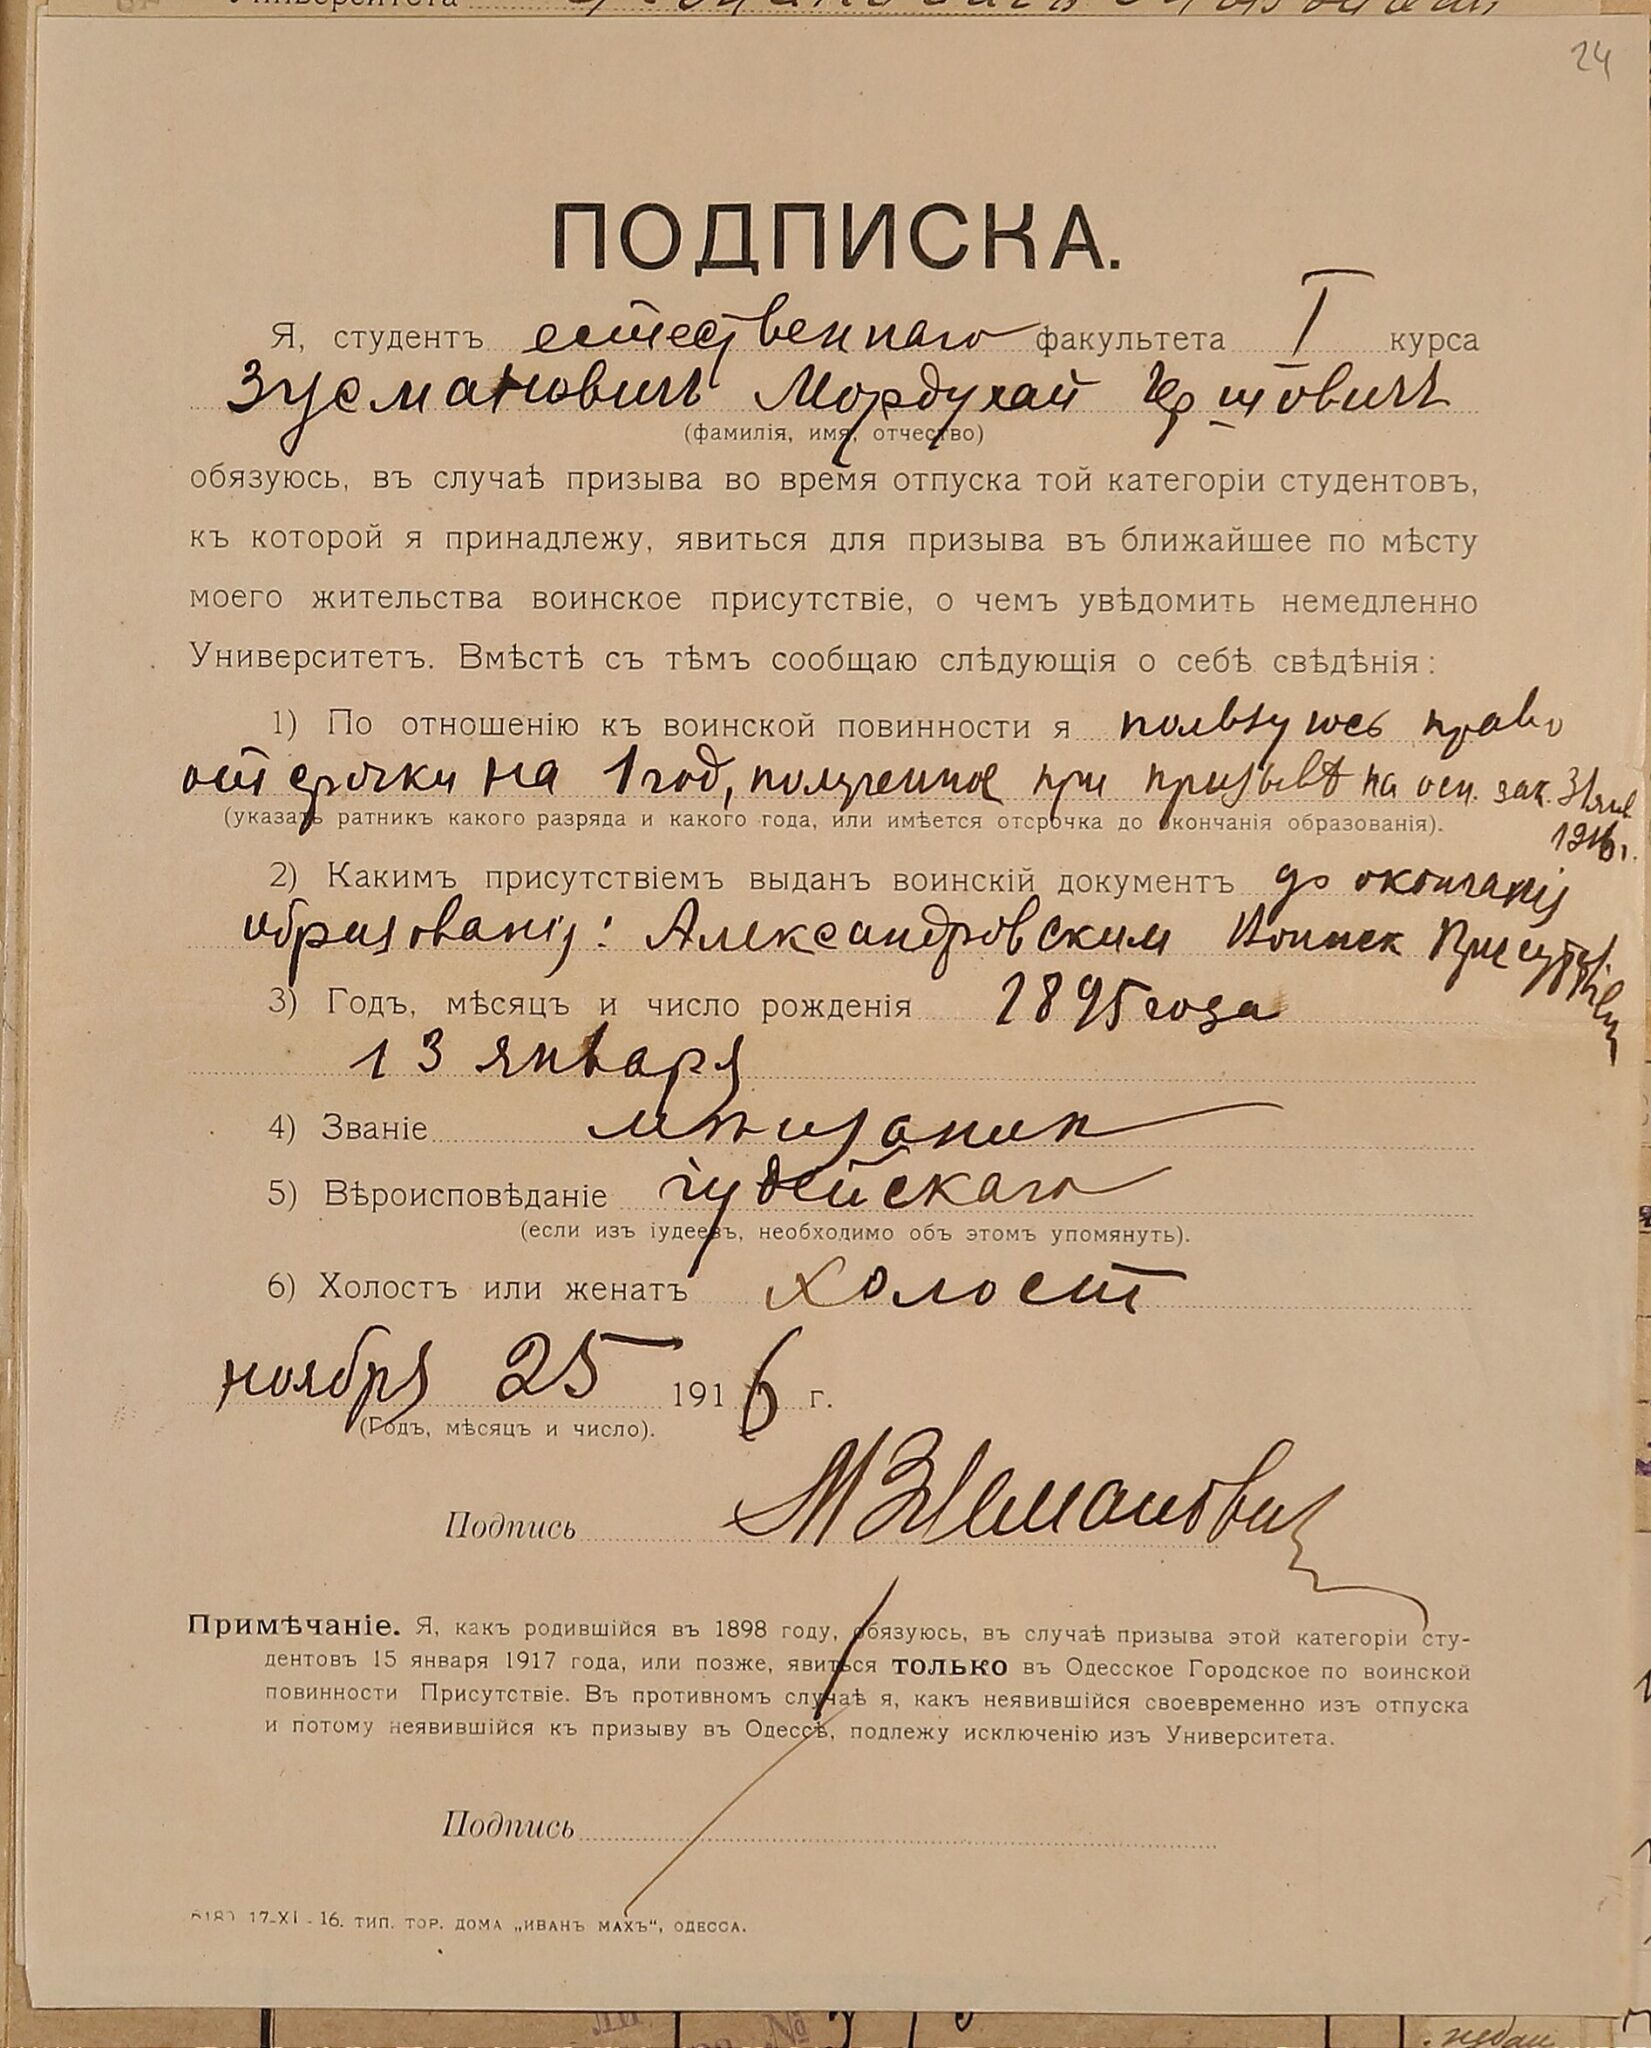 24
ПОДПИСКА.
Я, студентъ естественнаго факультета I курса
Зусмановичъ Мордухай Герщовичъ
(фамилія, имя, отчество)
обязуюсь, въ случаѣ призыва во время отпуска той категоріи студентовъ,
къ которой я принадлежу, явиться для призыва въ ближайшее по мѣсту
моего жительства воинское присутствіе, о чемъ увѣдомить немедленно
Университетъ. Вмѣстѣ съ тѣмъ сообщаю слѣдующія о себѣ свѣдѣнія:
1) По отношенію къ воинской повинности я пользуюсь право
отсрочки на 1 год, полученное при призывѣ на осн. зак. 31 янв.
1916 г.
(указать ратникъ какого разряда и какого года, или имѣется отсрочка до окончанія образованія).
2) Какимъ присутствіемъ выданъ воинскій документъ до окончанія
образованія: Александровским Воинск Присутствіем
3) Годъ, мѣсяцъ и число рожденія 1895 года
13 января
4) Званіе мѣщанин
5) Вѣроисповѣданіе іудейскаго
(если изъ іудеевъ, необходимо объ этомъ упомянуть).
6) Холостъ или женатъ холост
ноября 25 1916 г.
(Годъ, мѣсяцъ и число).
Подпись М Зусманович
Примѣчаніе. Я, какъ родившійся въ 1898 году, обязуюсь, въ случаѣ призыва этой категоріи сту-
дентовъ 15 января 1917 года, или позже, явиться ТОЛЬКО въ Одесское Городское по воинской
повинности Присутствіе. Въ противномъ случаѣ я, какъ неявившійся своевременно изъ отпуска
и потому неявившійся къ призыву въ Одессѣ, подлежу исключенію изъ Университета.
Подпись
17-XI - 16. ТИП. ТОР. ДОМА „ИВАНЪ МАХЪ“, ОДЕССА.